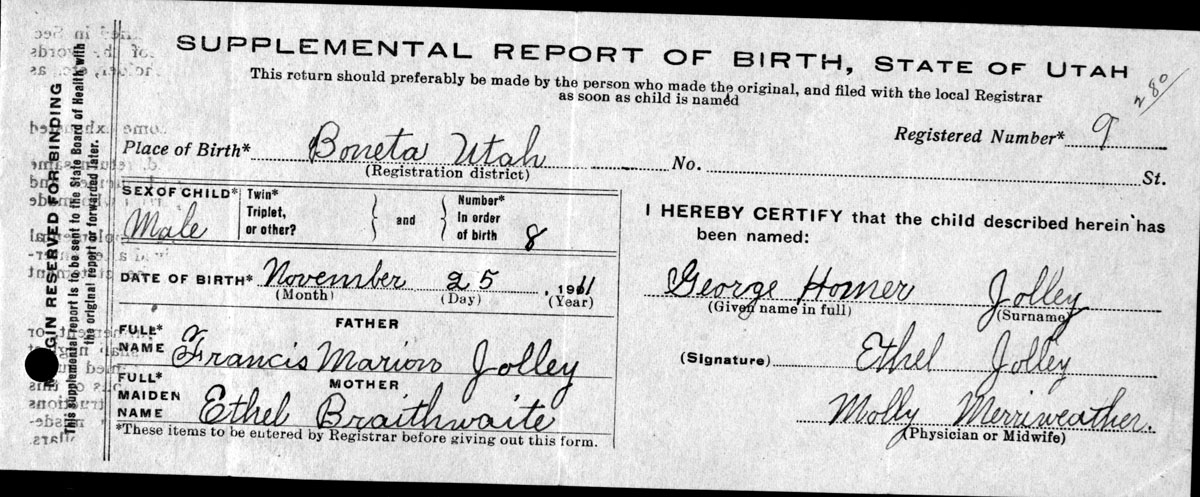 SUPPLEMENTAL REPORT OF BIRTH, STATE OF UTAH
This return should preferably be made by the person who made the original, and filed with the local Registrar
as soon as child is named
280
Registered Number* 9
Place of Birth* Boneta Utah No. St.
(Registration district)
SEX OF CHILD* Male
Twin* Triplet, or other?
and
Number* In order of birth 8
DATE OF BIRTH* November 25, 1911
(Month) (Day) (Year)
FATHER
FULL* NAME Francis Marion Jolley
MOTHER
FULL* MAIDEN NAME Ethel Braithwaite
*These items to be entered by Registrar before giving out this form.
I HEREBY CERTIFY that the child described herein has
been named:
George Homer Jolley
(Given name in full) (Surname)
(Signature) Ethel Jolley
Molly Merriweather.
(Physician or Midwife)
GIN RESERVED FOR BINDING
This supplemental report is to be sent to the State Board of Health with
the original report or forwarded later.